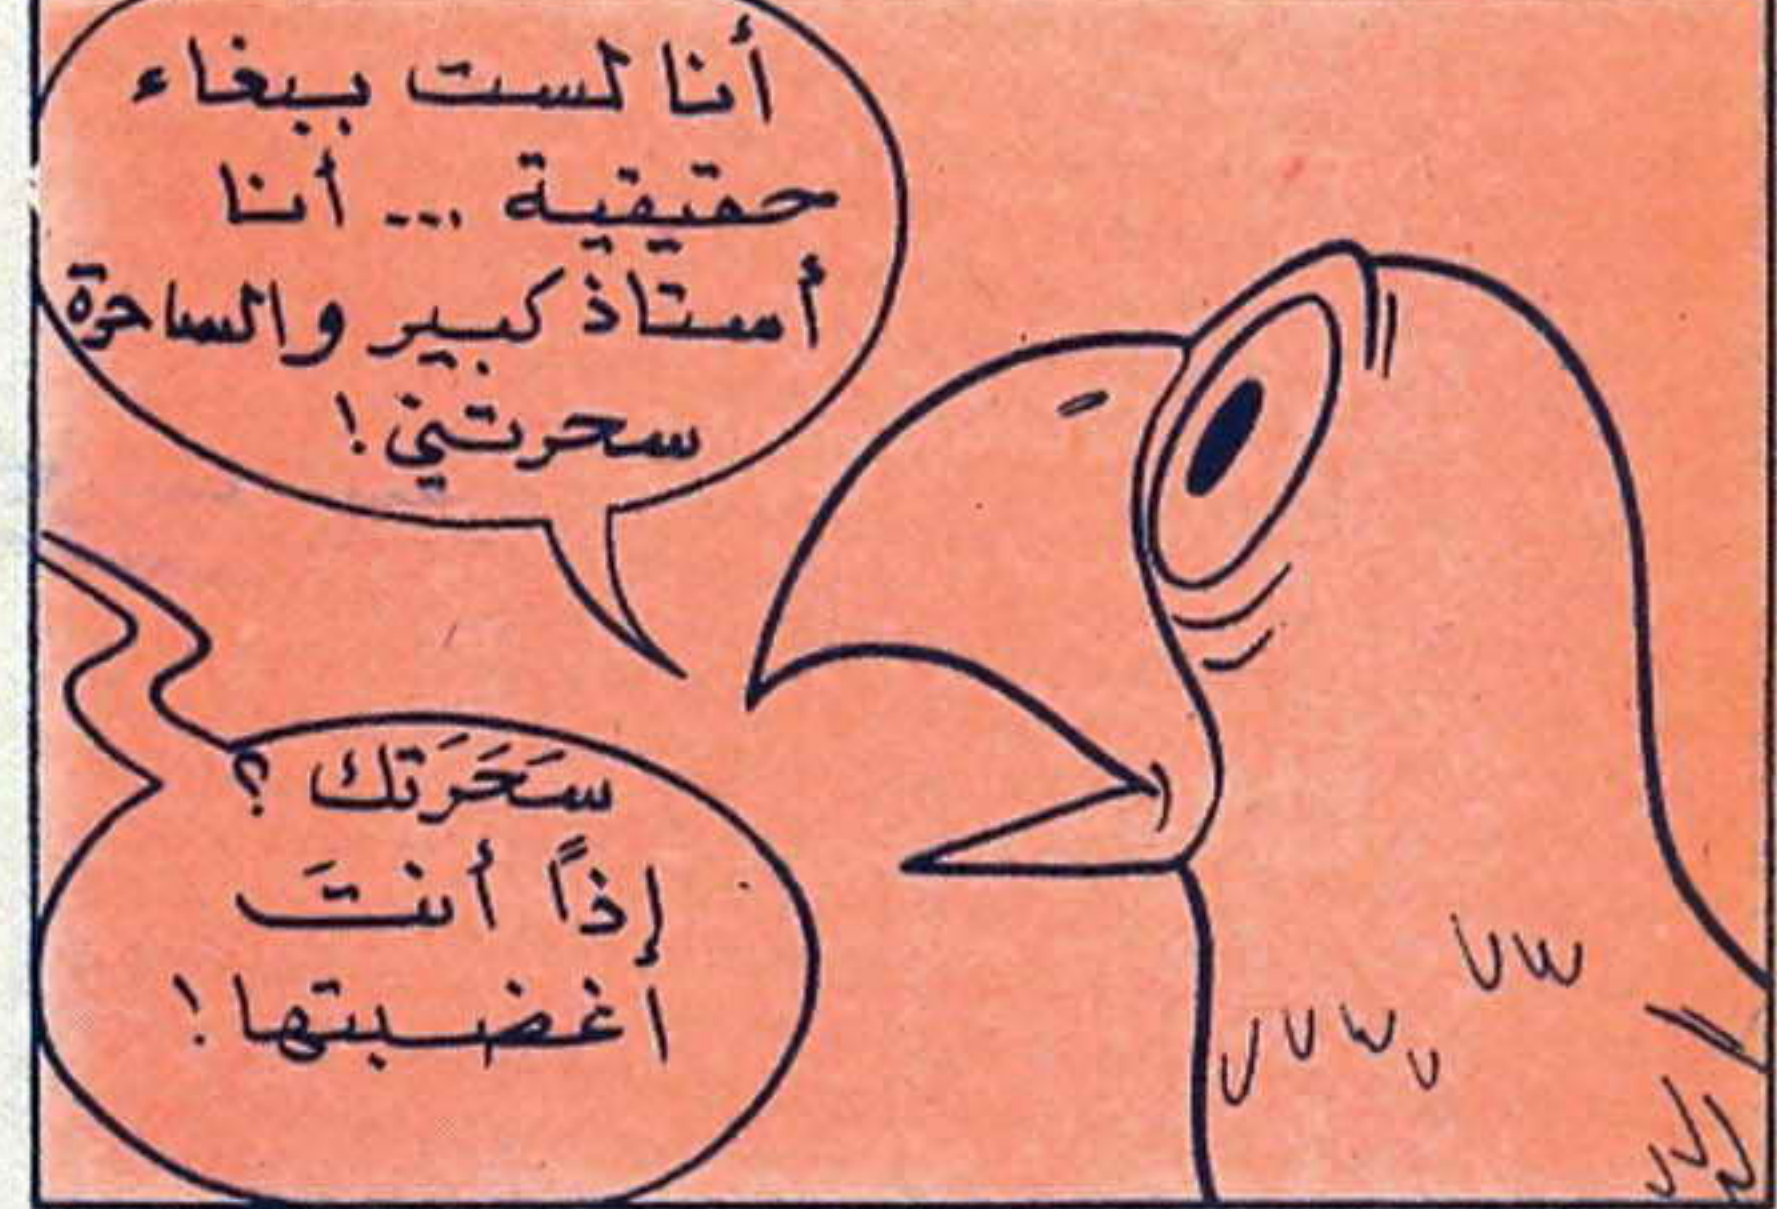 أنا لست ببغاء
حقيقية ... أنا
أستاذ كبير والساحرة
سحرتني !
سَحَرَتك ؟
إذاً أنتَ
أغضبتها !